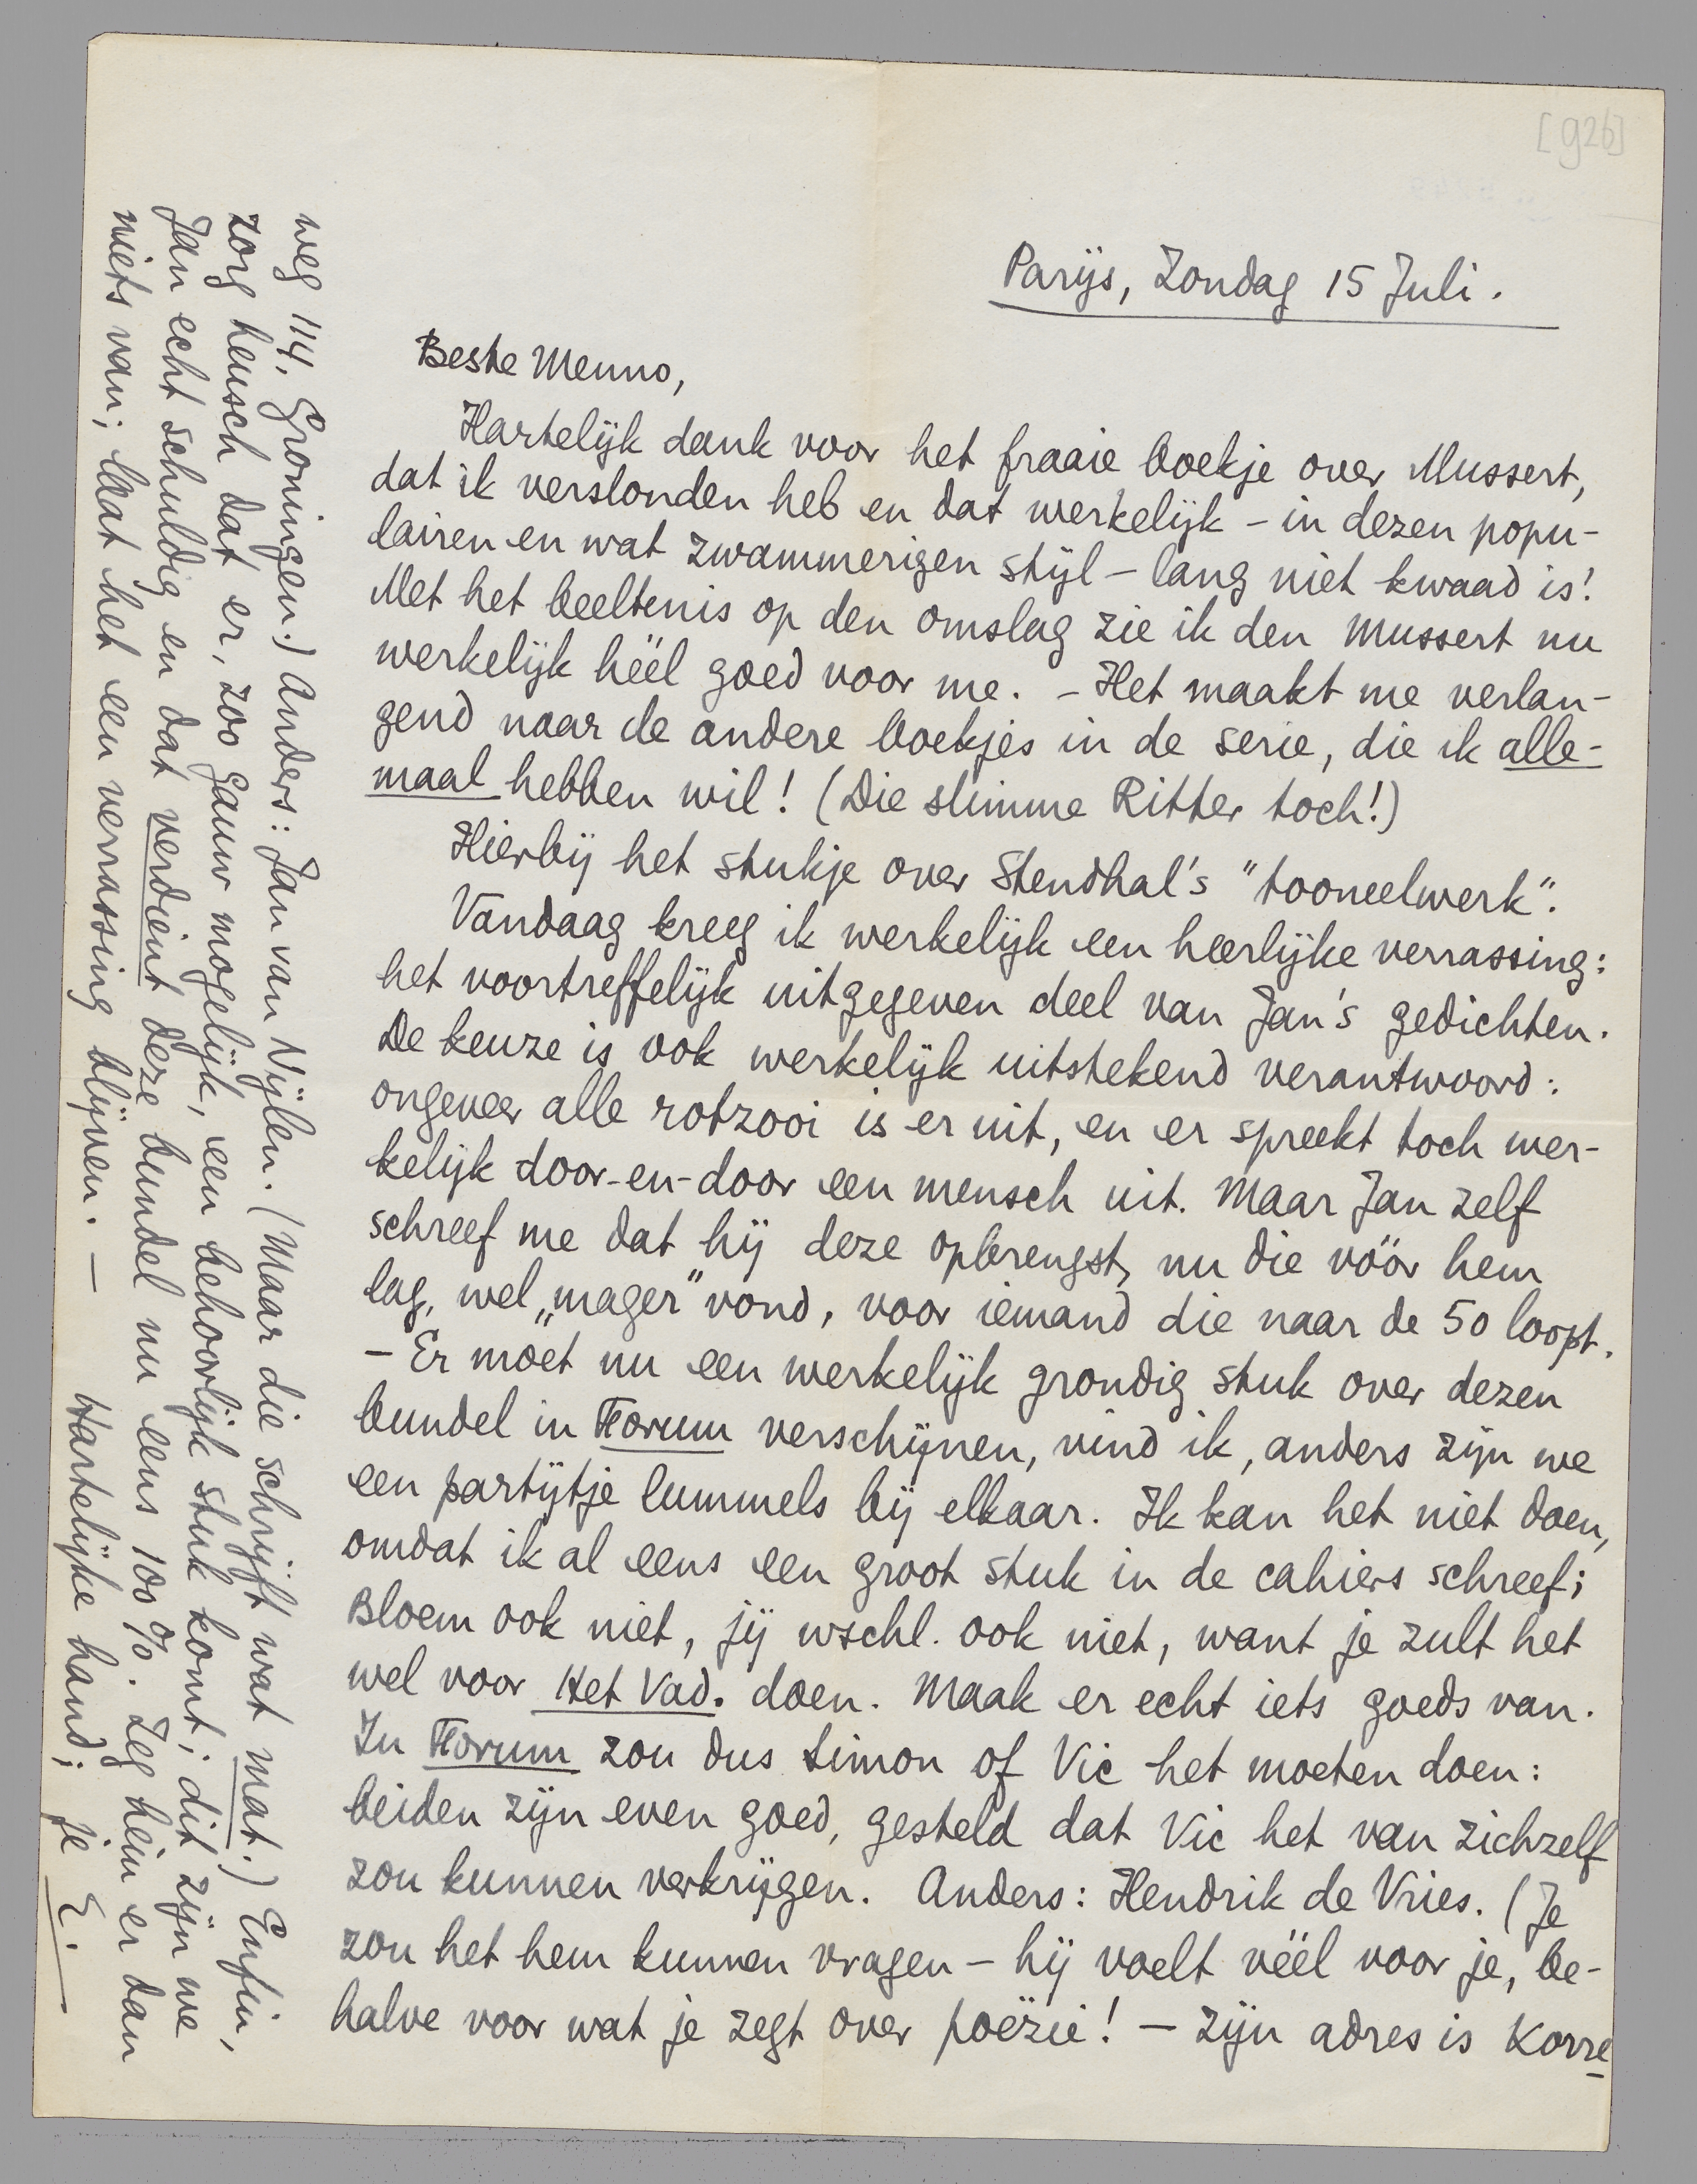 [926]
Parijs, Zondag 15 Juli.
Beste Menno,
Hartelijk dank voor het fraaie boekje over Mussert,
dat ik verslonden heb en dat werkelijk – in dezen popu-
lairen en wat zwammerigen stijl – lang niet kwaad is!
Met het beeltenis op den omslag zie ik den Mussert nu
werkelijk héél goed voor me. – Het maakt me verlan-
gend naar de andere boekjes in de serie, die ik alle-
maal hebben wil! (Die slimme Ritter toch!)
Hierbij het stukje over Stendhal's "tooneelwerk".
Vandaag kreeg ik werkelijk een heerlijke verrassing:
het voortreffelijk uitgegeven deel van Jan's gedichten.
De keuze is ook werkelijk uitstekend verantwoord:
ongeveer alle rotzooi is er uit, en er spreekt toch wer-
kelijk door-en-door een mensch uit. Maar Jan zelf
schreef me dat hij deze opbrengst, nu die vóór hem
lag, wel „mager" vond, voor iemand die naar de 50 loopt.
– Er moet nu een werkelijk grondig stuk over dezen
bundel in Forum verschijnen, vind ik, anders zijn we
een partijtje lummels bij elkaar. Ik kan het niet doen,
omdat ik al eens een groot stuk in de cahiers schreef;
Bloem ook niet, jij wschl. ook niet, want je zult het
wel voor Het Vad. doen. Maak er echt iets goeds van.
In Forum zou dus Simon of Vic het moeten doen:
beiden zijn even goed, gesteld dat Vic het van zichzelf
zou kunnen verkrijgen. Anders: Hendrik de Vries. (Je
zou het hem kunnen vragen – hij voelt véél voor je, be-
halve voor wat je zegt over poëzie! – Zijn adres is Korre-
weg 114, Groningen.) Anders: Jan van Nijlen. (Maar die schrijft wat mat.) Enfin,
zorg heusch dat er, zoo gauw mogelijk, een behoorlijk stuk komt; dit zijn we
Jan echt schuldig en dat verdient deze bundel nu eens 100%. Zeg hem er dan
niets van; laat het een verrassing blijven. —
Hartelijke hand; je E.